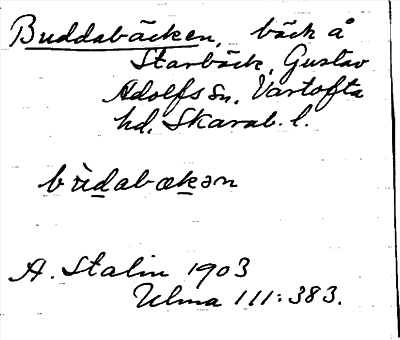 Buddabäcken, bäck å
Starbäck, Gustav
Adolfs sn, Vartofta
hd, Skarab. l.
bùdabækən
A. Stalin 1903
Ulma 111:383.